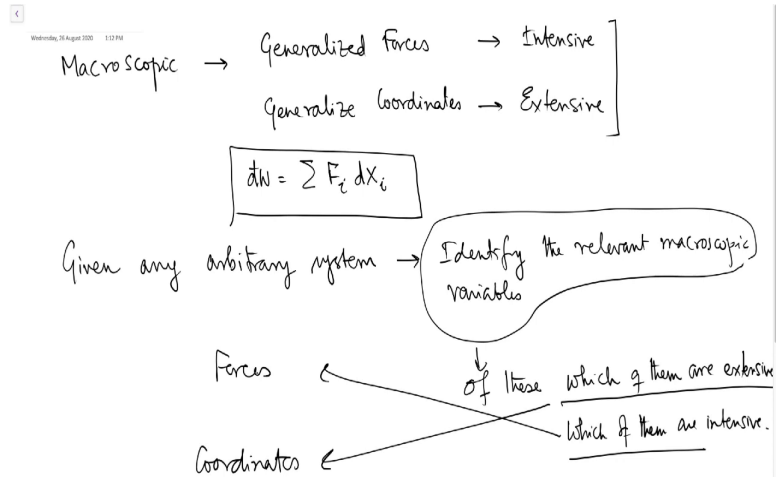 Wednesday, 26 August 2020 1:12 PM
Macroscopic → Generalized Forces → Intensive
Generalize Coordinates → Extensive
đW = Σ F_i dX_i
Given any arbitrary system → Identify the relevant macroscopic
variables
Forces
of these which of them are extensive
which of them are intensive.
Coordinates